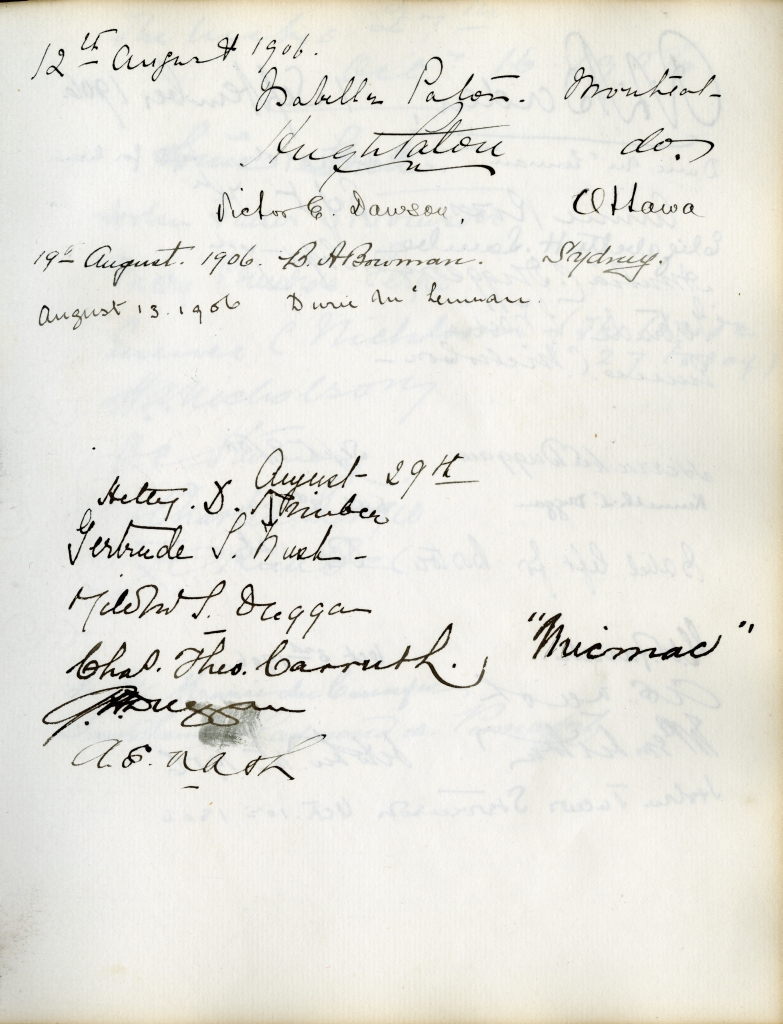 12th August 1906.
Isabella Paton. Montreal-
Hugh Paton do.
Victor E. Dawson, Ottawa
19th August. 1906. B. A Bowman. Sydney.
August 13. 1906 Durie McLennan.
August 29th
Hetty. D.
Gertrude S. Nash -
Mildred S. Duggan
Chas. Theo. Carruth. , "Micmac"
Duggan
A. E. Nash